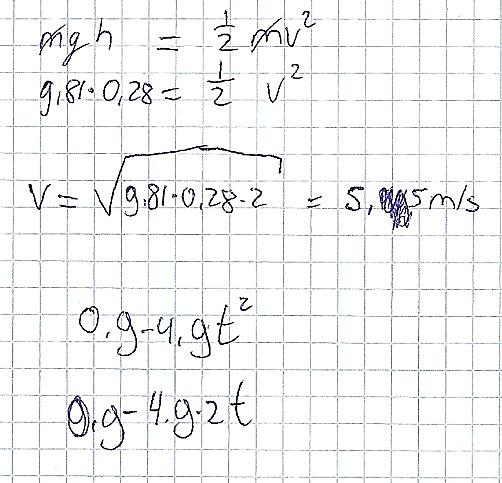 mgh = 1/2 mv²
9,81·0,28 = 1/2 v²
V = √9.81·0,28·2 = 5, 5 m/s
0,9-4,9t²
0,9-4,9·2t